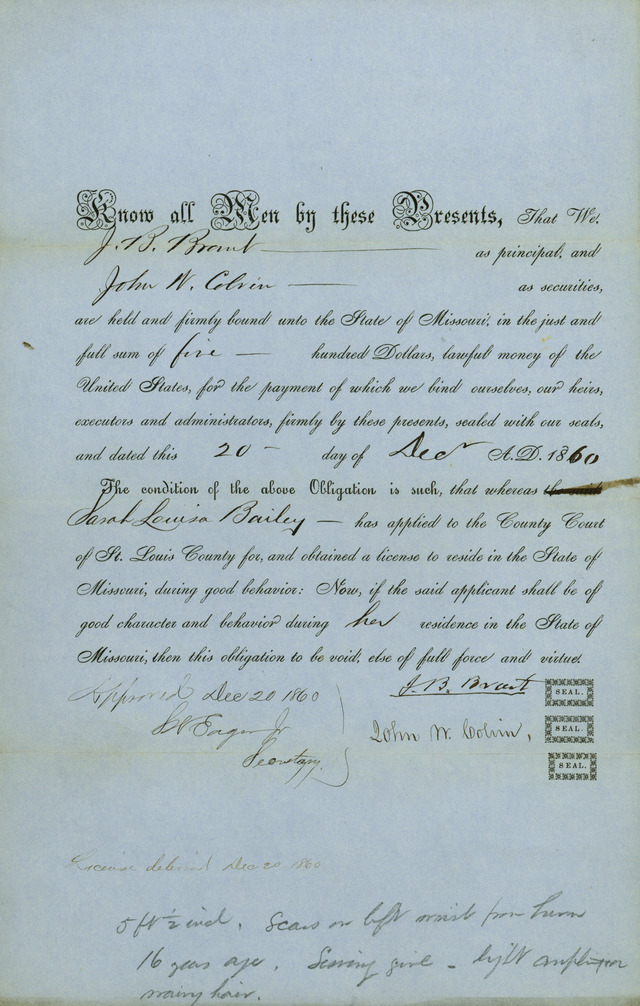 Know all Men by these Presents, That We,
J. B. Brant as principal, and
John W. Colvin as securities,
are held and firmly bound unto the State of Missouri, in the just and
full sum of five hundred Dollars, lawful money of the
United States, for the payment of which we bind ourselves, our heirs,
executors and administrators, firmly by these presents, sealed with our seals,
and dated this 20 day of Decr A.D. 1860
The condition of the above Obligation is such, that whereas the said
Sarah Louisa Bailey has applied to the County Court
of St. Louis County for, and obtained a license to reside in the State of
Missouri, during good behavior: Now, if the said applicant shall be of
good character and behavior during her residence in the State of
Missouri, then this obligation to be void, else of full force and virtue.
Approved Dec 20 1860
J. B. Brant SEAL.
Jr
John W. Colvin, SEAL.
Secretary.
SEAL.
License Dec 20 1860
5 ft ½ inch. Scars on left wrist from burn
16 years age. Sewing girl - light
hair.